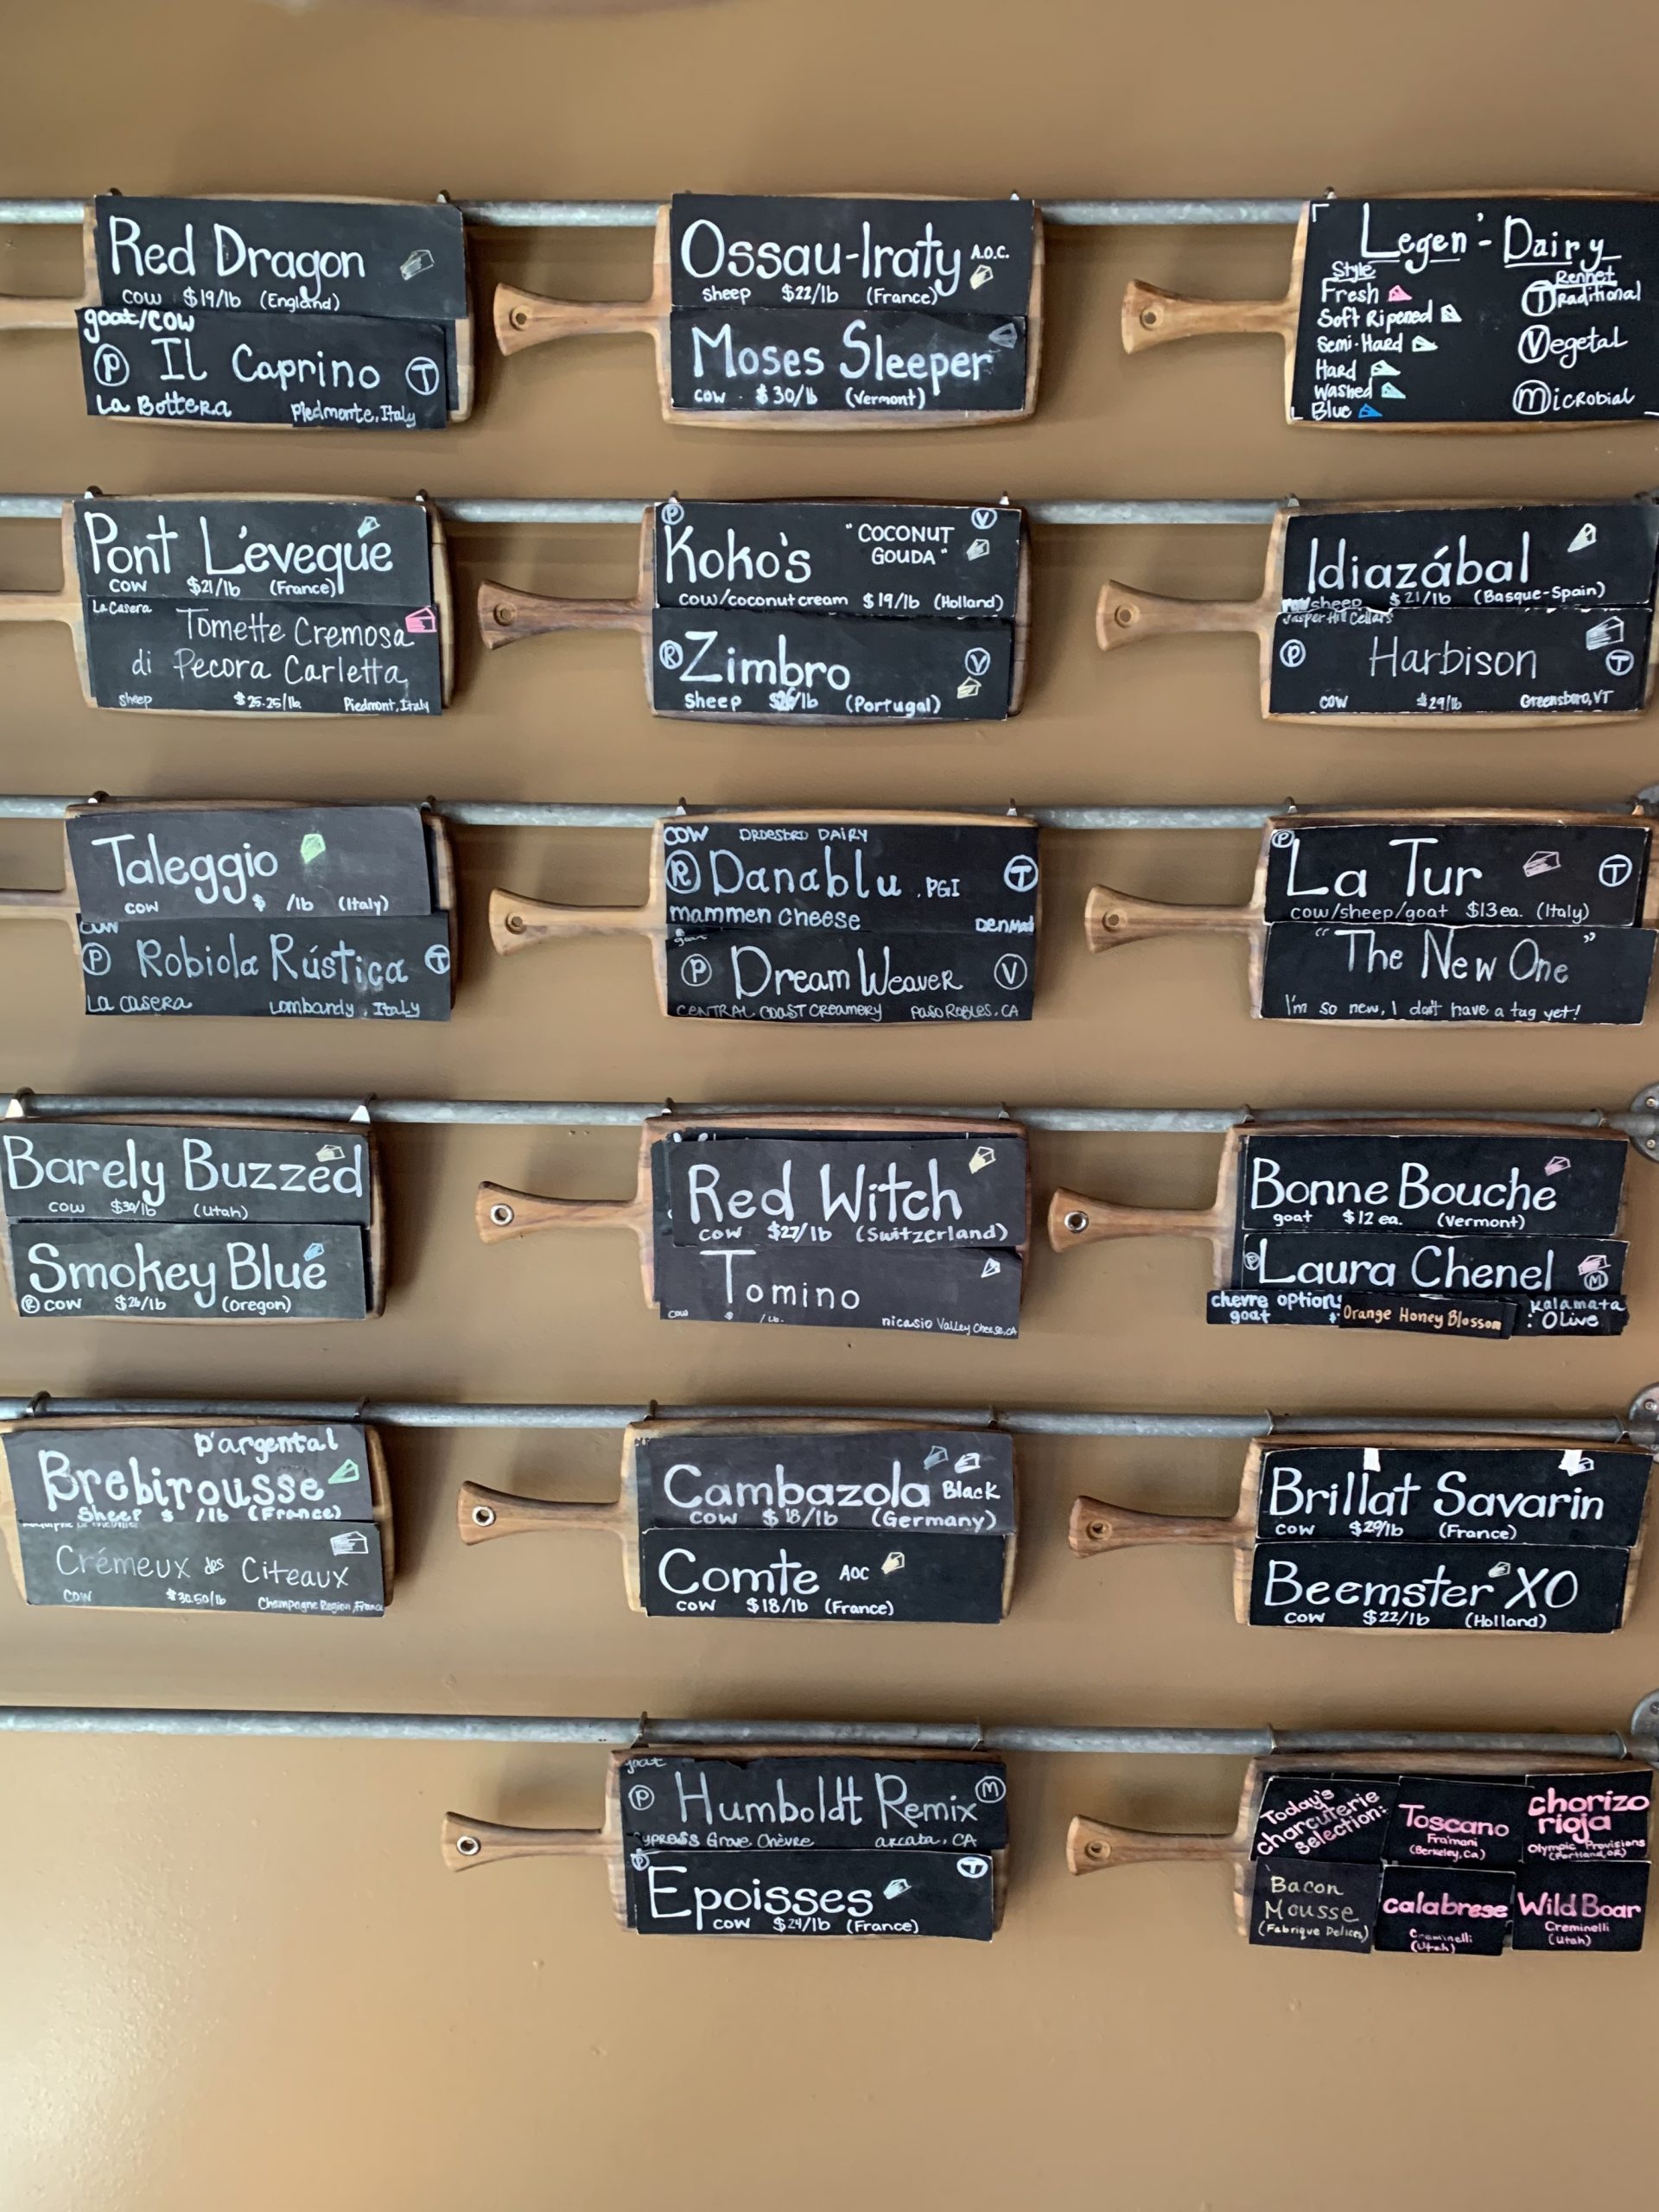 Red Dragon
cow $19/lb (England)
goat/cow
P Il Caprino T
La Bottera Piedmonte, Italy
Ossau-Iraty A.O.C.
sheep $22/lb (France)
Moses Sleeper
cow $30/lb (Vermont)
Legen'-Dairy
Style
Fresh
Soft Ripened
Semi-Hard
Hard
Washed
Blue
Rennet
Traditional
Vegetal
Microbial
Pont L'eveque
cow $21/lb (France)
La Casera
Tomette Cremosa
di Pecora Carletta
sheep $25.25/lb Piedmont, Italy
P V
Koko's "COCONUT
GOUDA"
cow/coconut cream $19/lb (Holland)
R Zimbro V
Sheep /lb (Portugal)
Idiazábal
raw sheep $21/lb (Basque-Spain)
Jasper Hill Cellars
P Harbison T
cow $29/lb Greensboro, VT
Taleggio
cow $ /lb (Italy)
cow
P Robiola Rústica T
La Casera Lombandy, Italy
COW DROESBRO DAIRY
R Danablu .PGI T
mammen cheese Denmark
goat
P Dream Weaver V
CENTRAL COAST Creamery PASO ROBLES, CA
P
La Tur T
cow/sheep/goat $13 ea. (Italy)
"The New One"
I'm so new, I don't have a tag yet!
Barely Buzzed
cow $30/lb (Utah)
Smokey Blue
R cow $26/lb (Oregon)
Red Witch
cow $27/lb (Switzerland)
Tomino
cow $ /lb. nicasio Valley Cheese, CA
Bonne Bouche
goat $12 ea. (Vermont)
P Laura Chenel M
chevre options
goat $
Orange Honey Blossom
Kalamata
: Olive
D'argental
Brebirousse
Sheep $ /lb (France)
Crémeux des Citeaux
cow $30.50/lb Champagne Region, France
Cambazola Black
cow $18/lb (Germany)
Comte AOC
cow $18/lb (France)
Brillat Savarin
cow $29/lb (France)
Beemster XO
cow $22/lb (Holland)
goat
P Humboldt Remix M
Cypress Grove Chèvre arcata, CA
P T
Epoisses
cow $24/lb (France)
Today's
charcuterie
selection:
Toscano
Fra'mani
(Berkeley, Ca)
chorizo
rioja
Olympic Provisions
(Portland, OR)
Bacon
Mousse
(Fabrique Delices)
calabrese
Creminelli
(Utah)
Wild Boar
Creminelli
(Utah)